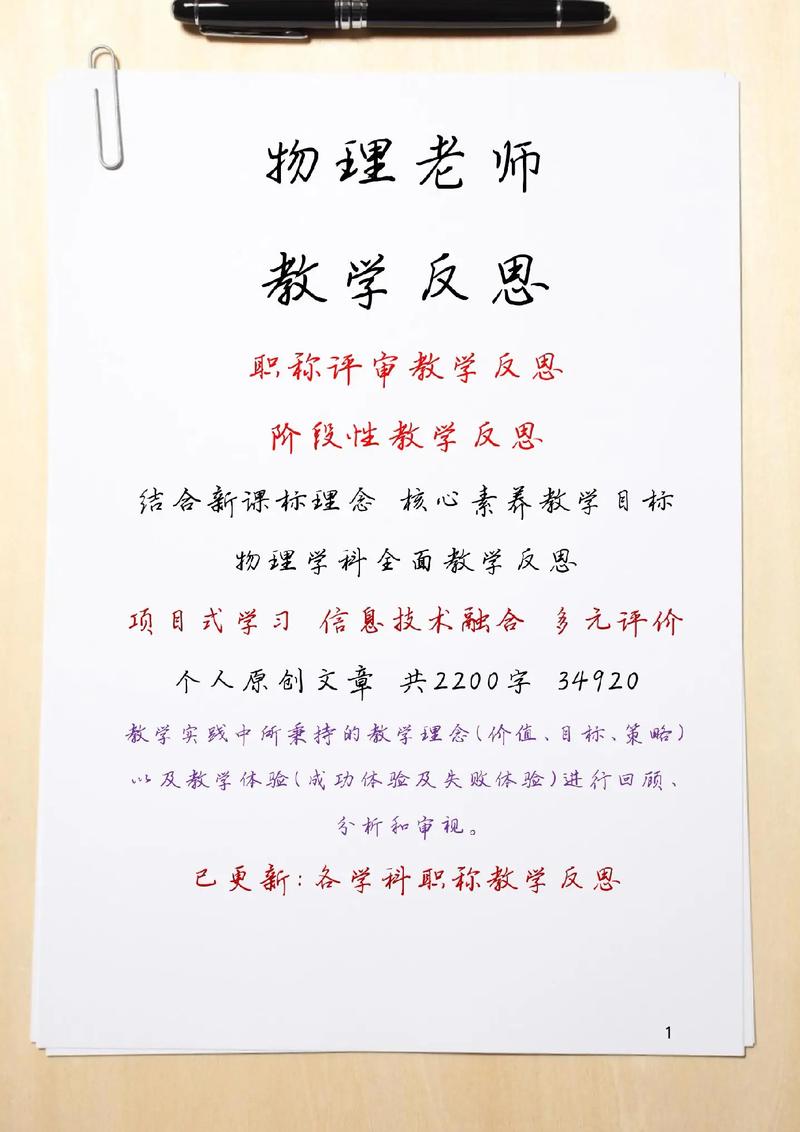 物理老师
教学反思
职称评审教学反思
阶段性教学反思
结合新课标理念 核心素养教学目标
物理学科全面教学反思
项目式学习 信息技术融合 多元评价
个人原创文章 共2200字 34920
教学实践中所秉持的教学理念(价值、目标、策略)
以及教学体验(成功体验及失败体验)进行回顾、
分析和审视。
已更新:各学科职称教学反思
1